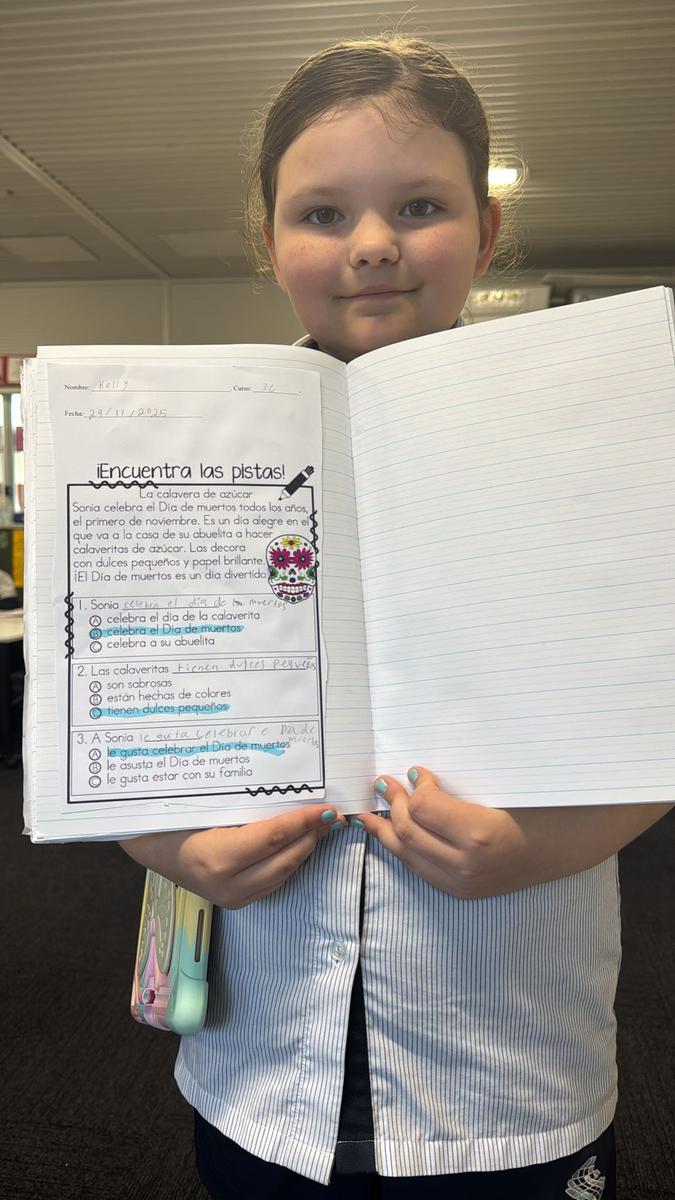 Nombre: Holly Curso: 3C
Fecha: 29/11/2025
¡Encuentra las pistas!
La calavera de azúcar
Sonia celebra el Día de muertos todos los años,
el primero de noviembre. Es un día alegre en el
que va a la casa de su abuelita a hacer
calaveritas de azúcar. Las decora
con dulces pequeños y papel brillante.
¡El Día de muertos es un día divertido
1. Sonia celebra el día de muertos
A celebra el día de la calaverita
B celebra el Día de muertos
C celebra a su abuelita
2. Las calaveritas tienen dulces pequeños
A son sabrosas
B están hechas de colores
C tienen dulces pequeños
3. A Sonia le gusta celebrar e Día de
muertos
A le gusta celebrar el Día de muertos
B le asusta el Día de muertos
C le gusta estar con su familia